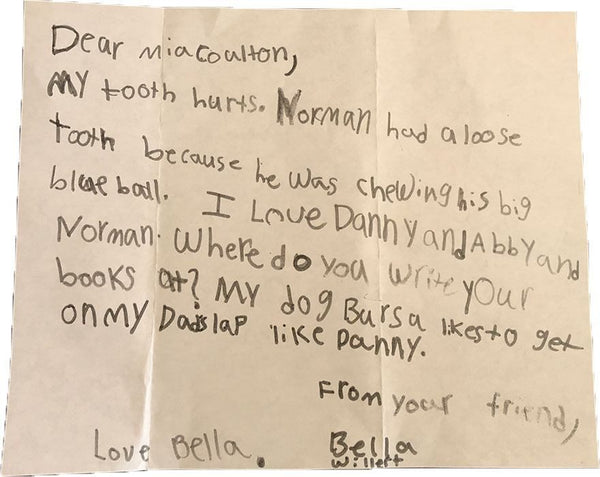 Dear Mia Coulton,
My tooth hurts. Norman had a loose
tooth because he was chewing his big
blue ball. I Love Danny and Abby and
Norman. Where do you write your
books at? My dog Bursa likes to get
on my Dads lap like Danny.
From your friend,
Love Bella. Bella
Willett